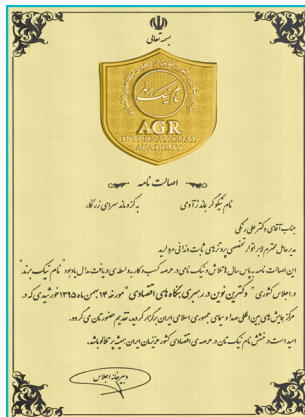 بسمه تعالی
نام نیک برند
AGR
INTERNATIONAL
ACADEMY
اصالت نامه
نام نیکو گر بماند ز آدمی
به کز او ماند سرای زرنگار
جناب آقای دکتر علی
مدیر عامل محترم لابراتوار تخصصی پروتزهای ثابت دندانی مروارید
این اصالت نامه به پاس سال ها تلاش و نیک نامی در عرصه کسب و کار به واسطه ی دریافت مدال یادبود "نام نیک برند"
در اجلاس کشوری "دکترین نوین در رهبری بنگاه های اقتصادی" مورخه ۱۴ بهمن ماه ۱۳۹۵ خورشیدی که در
مرکز همایش های بین المللی صدا و سیمای جمهوری اسلامی ایران برگزار گردید، تقدیم حضورتان می گردد.
امید است درخشش نام نیک تان در عرصه ی اقتصادی کشور عزیزمان ایران همیشه پر فروغ باشد.
دبیرخانه اجلاس